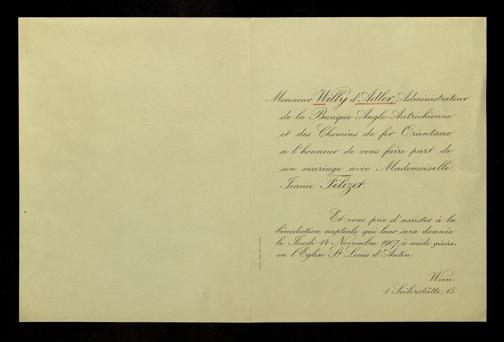 Monsieur Willy d'Adler, Administrateur
de la Banque Anglo-Autrichienne
et des Chemins de fer Orientaux
a l'honneur de vous faire part de
son mariage avec Mademoiselle
Jeanie Félizet.
Et vous prie d'assister à la
bénédiction nuptiale qui leur sera donnée
le Jeudi 14 Novembre 1907 à midi précis,
en l'Eglise St Louis d'Antin.
Wien.
1 Seilerstätte, 15